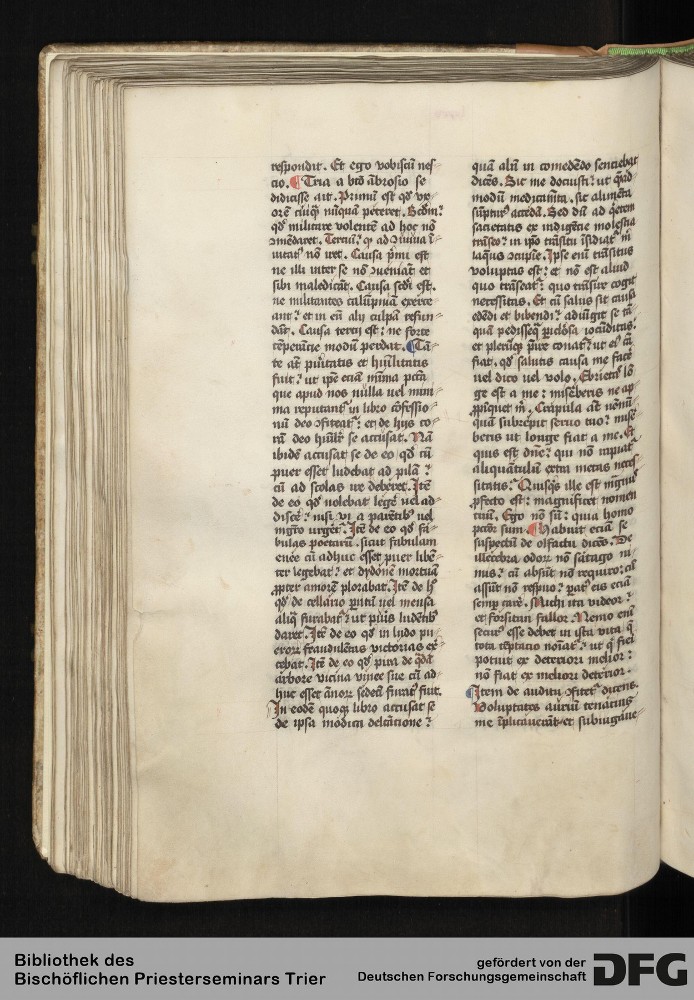 respondit. Et ego vobiscū nes⸗
cio. ¶ Tria a btō ābrosio se
didicisse ait. Primū est qd vx⸗
orē cuiqȝ nūquā peteret. Secūm:
qd militare volentē ad hoc nō
ↄmēdaret. Terciū: qd ad ↄuiuia ī⸗
uitatꝰ nō iret. Causa pⁱmi est
ne illi inter se nō ↄueniāt et
sibi maledicāt. Causa scdi est.
ne militantes calūpniam exerce⸗
ant: et in eū alij culpā refun⸗
dāt. Causa tercij est: ne forte
tēperātie modū perdat. ¶ Tā⸗
te āt puritatis et hūilitatis
fuit: ut ipe eciā mīma pctā
que apud nos nulla uel mini⸗
ma reputantr in libro cōfessio⸗
nū deo ↄfiteatr: et de hijs co⸗
rā deo hūilr se accusat. Nā
ibidē accusat se de eo qd cū
puer esset ludebat ad pilā:
cū ad scolas ire deberet. Itē
de eo qd nolebat legē uel ad⸗
discē: nisi vi a parētibꝰ uel
mgrō urgetr. Itē de eo qd fa⸗
bulas poetarū. sicut fabulam
enee cū adhuc esset puer libē⸗
ter legebat: et dydonē mortuā
ꝓpter amorē plorabat. Itē de h'
qd de cellario parētū uel mensa
aliqͣ furabatr: ut pueris ludētibꝰ
daret. Itē de eo qd in ludo pu⸗
erorū fraudulētas victorias ex⸗
cebat. Itē de eo qd pira de qͣdā
arbore vicina vinee sue cū ad⸗
huc esset ānorū sedecī furatꝰ fuit.
In eodē quoqȝ libro accusat se
de ipsa modica delcātione:
quā aliī in comedēdo senciebat
dicēs. Sic me docuisti: ut quēad
modū medicamīta. sic alimēta
sūpturꝰ accedā. Sed dū ad qͥetem
sacietatis ex indigētie molestia
trāseo: in ipō trāsitu īsidiatr m̄
laqueꝰ ↄcupīe. Ipse enī trāsitus
voluptas est: et nō est aliud
quo trāseatr: quo trāsire cogit
necessitas. Et cū salus sit causa
edēdi et bibendi: adiūgit se tā⸗
quā pedisseqͣ piclōsa iocūditas:
et plerūqȝ pͥire conatr: ut eiꝰ cā
fiat. qd salutis causa me facē
uel dico uel volo. Ebrietas lō⸗
ge est a me: misēberis ne ap⸗
ꝓpīquet m̄. Crapula āt nōnū⸗
quā subrepit seruo tuo: misē⸗
beris ut longe fiat a me. Et
quis est dn̄e: qui nō rapiatr
aliquantulū extra metas neces⸗
sitatis: Quisqȝ ille est magnus
ꝓfecto est: magnificet nomen
tuū. Ego nō sū: quia homo
pctōr sum. ¶ Habuit eciā se
suspectū de olfactu dicēs. De
illecebra odorū nō satago ni⸗
mis: cū absūt nō requiro: cū
assūt nō respuo: paratꝰ eis eciā
semp carē. Michi ita videor:
et forsitan fallor. Nemo enī
securꝰ esse debet in ista vita q̄
tota tēptacio noīatr: ut qͥ fieri
potuit ex deteriori melior:
nō fiat ex meliori deterior.
¶ Item de auditu ↄfitetr dicens.
Voluptates auriū tenacius
me īplicauerāt et subiugaue⸗
Bibliothek des
Bischöflichen Priesterseminars Trier
gefördert von der
Deutschen Forschungsgemeinschaft
DFG